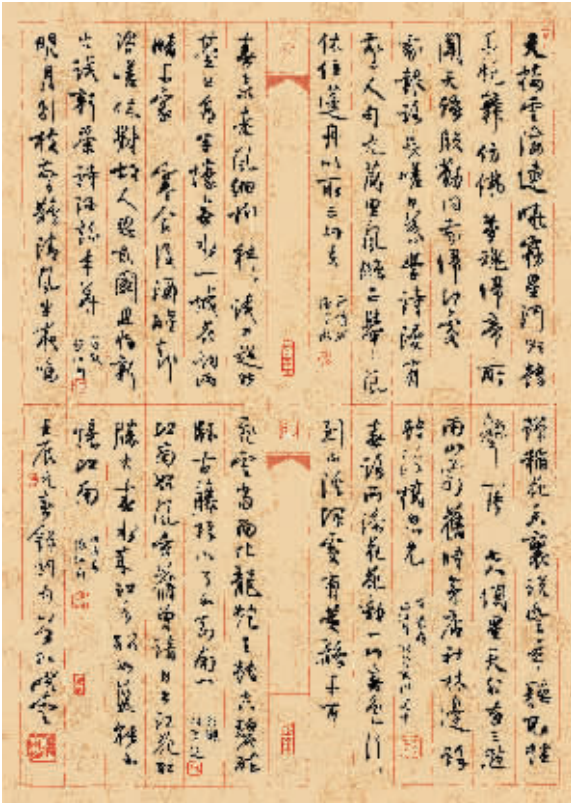 天接雲濤連曉霧星河欲轉
千帆舞仿佛夢魂歸帝所
聞天語殷勤問我歸何處
我報路長嗟日暮學詩漫有
驚人句九萬里風鵬正舉風
休住蓬舟吹取三山去
春未老風細柳斜斜試上超然
臺上看半壕春水一城花烟雨
暗千家 寒食後酒醒卻
咨嗟休對故人思故國且將新
火試新茶詩酒趁年華
明月別枝驚鵲清風半夜鳴
蟬稻花香裏說豐年聽取蛙
聲一片 七八個星天外兩三點
雨山前舊時茅店社林邊路
轉溪橋忽見
春路雨添花花動一山春色行
到小溪深處有黃鸝千百
飛雲當面化龍蛇夭矯轉空碧醉
臥古藤陰下了不知南北
江南好風景舊曾諳日出江花紅
勝火春來江水綠如藍能不
憶江南
壬辰